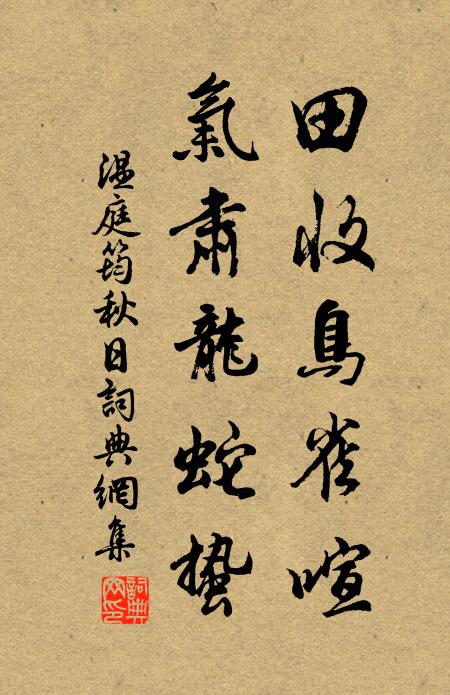 田收鳥雀喧
氣肅龍蛇蟄
温庭筠秋日詞典網集
詞典網印